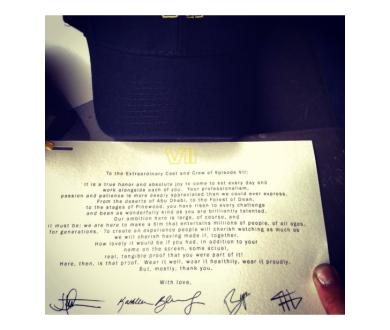 VII
To the Extraordinary Cast and Crew of Episode VII:
It is a true honor and absolute joy to come to set every day and
work alongside each of you. Your professionalism,
passion and patience is more deeply appreciated than we could ever express.
From the deserts of Abu Dhabi, to the Forest of Dean,
to the stages of Pinewood, you have risen to every challenge
and been as wonderfully kind as you are brilliantly talented.
Our ambition here is large, of course, and
it must be: we are here to make a film that entertains millions of people, of all ages,
for generations. To create an experience people will cherish watching as much as
we will cherish having made it, together.
How lovely it would be if you had, in addition to your
name on the screen, some actual,
real, tangible proof that you were part of it!
Here, then, is that proof. Wear it well, wear it healthily, wear it proudly.
But, mostly, thank you.
With love,